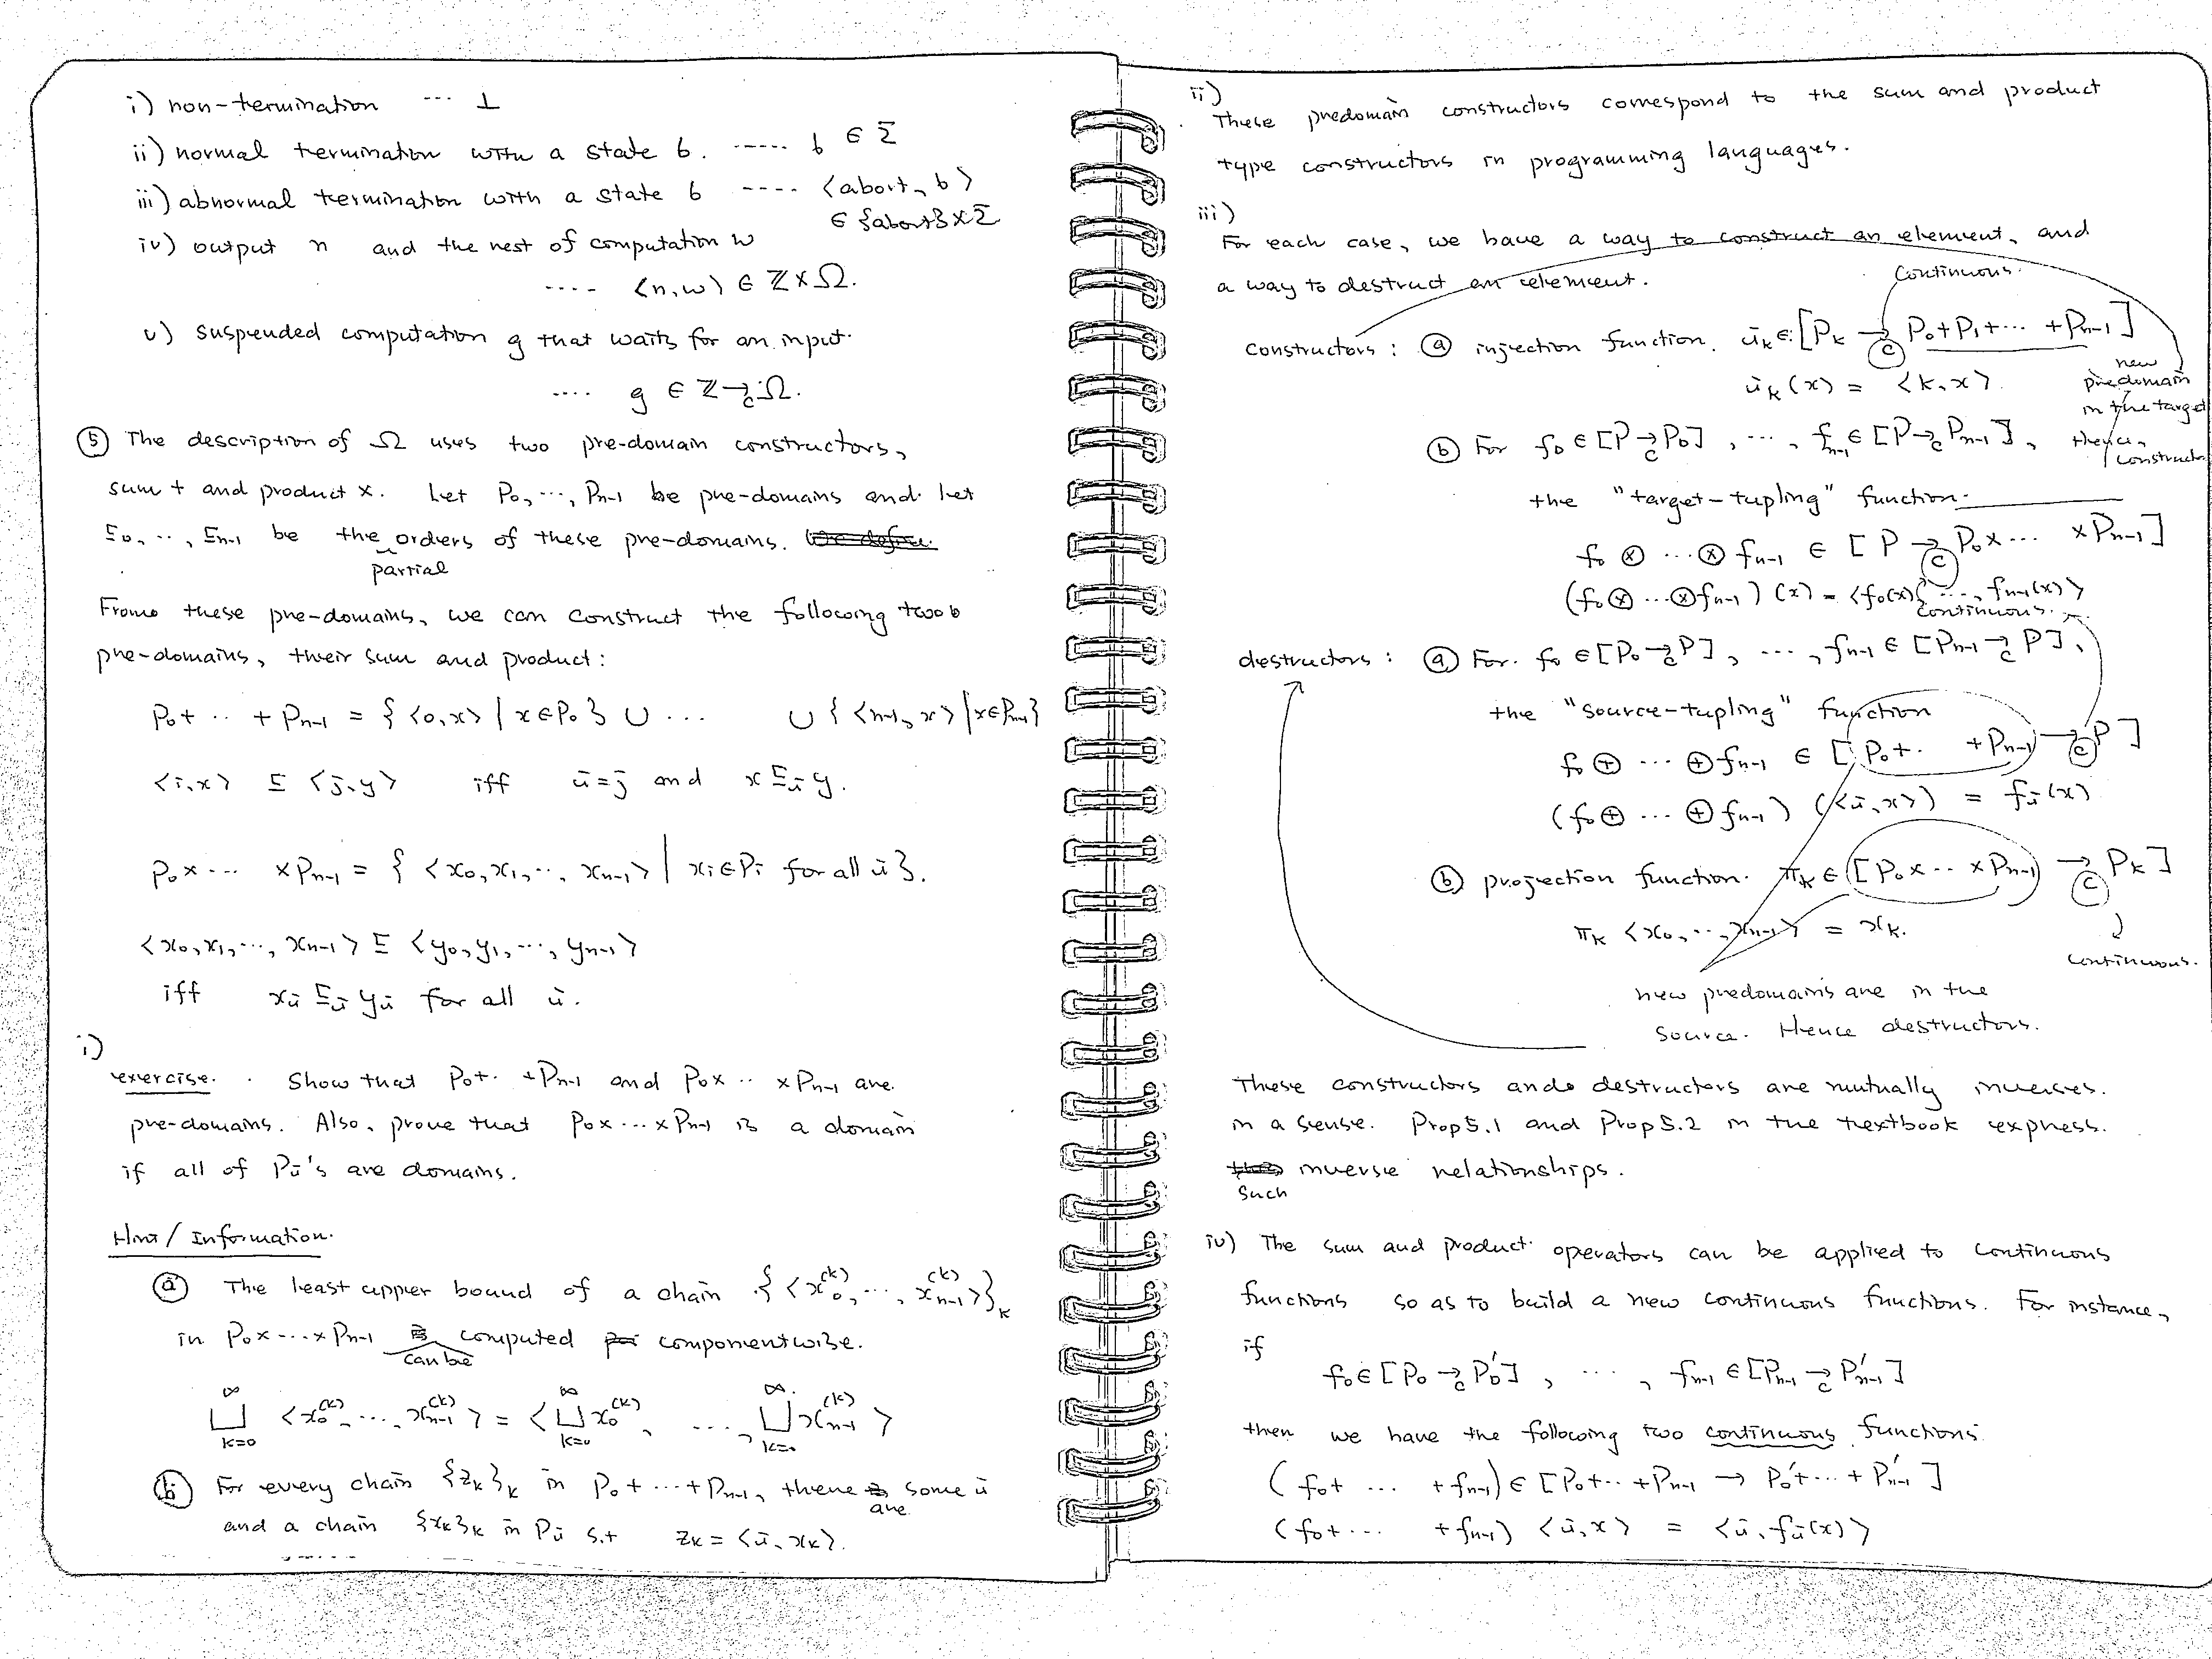 i) non-termination ... ⊥
ii) normal termination with a state σ. ..... σ ∈ Σ
iii) abnormal termination with a state σ .... <abort, σ>
∈ {abort} × Σ
iv) output n and the rest of computation w
.... <n, w> ∈ ℤ × Ω.
v) suspended computation g that waits for an input.
.... g ∈ ℤ →c Ω.
⑤ The description of Ω uses two pre-domain constructors,
sum + and product ×. Let P0, ..., Pn-1 be pre-domains and let
⊑0, .., ⊑n-1 be the orders of these pre-domains. We define
partial
From these pre-domains, we can construct the following two
pre-domains, their sum and product:
P0 + .. + Pn-1 = { <0, x> | x ∈ P0 } ∪ ... ∪ { <n-1, x> | x ∈ Pn-1 }
<i, x> ⊑ <j, y> iff i = j and x ⊑i y.
P0 × ... × Pn-1 = { <x0, x1, .., xn-1> | xi ∈ Pi for all i }.
<x0, x1, ..., xn-1> ⊑ <y0, y1, ..., yn-1>
iff xi ⊑i yi for all i.
i)
exercise. Show that P0 + . + Pn-1 and P0 × .. × Pn-1 are
pre-domains. Also, prove that P0 × ... × Pn-1 is a domain
if all of Pi's are domains.
Hint / Information.
ⓐ The least upper bound of a chain { <x0^(k), ..., xn-1^(k)> }k
in P0 × ... × Pn-1 is computed componentwise.
can be
⊔k=0^∞ <x0^(k), ..., xn-1^(k)> = < ⊔k=0^∞ x0^(k), ..., ⊔k=0^∞ xn-1^(k) >
ⓑ For every chain {zk}k in P0 + ... + Pn-1, there is some i
are
and a chain {xk}k in Pi s.t zk = <i, xk>.
ii)
These predomain constructors correspond to the sum and product
type constructors in programming languages.
iii)
For each case, we have a way to construct an element, and
a way to destruct an element.
continuous.
constructors : ⓐ injection function. ik ∈ [Pk →c P0 + P1 + ... + Pn-1]
ik(x) = <k, x>.
new
predomain
in the target
hence,
constructor
ⓑ For f0 ∈ [P →c P0], ..., fn-1 ∈ [P →c Pn-1],
the "target-tupling" function.
f0 ⊗ ... ⊗ fn-1 ∈ [P →c P0 × ... × Pn-1]
(f0 ⊗ ... ⊗ fn-1)(x) = <f0(x), ..., fn-1(x)>
continuous.
destructors : ⓐ For f0 ∈ [P0 →c P], ..., fn-1 ∈ [Pn-1 →c P],
the "source-tupling" function
f0 ⊕ ... ⊕ fn-1 ∈ [P0 + . + Pn-1 →c P]
(f0 ⊕ ... ⊕ fn-1)(<i, x>) = fi(x)
ⓑ projection function. πk ∈ [P0 × ... × Pn-1 →c Pk]
πk <x0, ..., xn-1> = xk.
continuous.
new predomains are in the
source. Hence destructors.
These constructors and destructors are mutually inverses.
in a sense. Prop 5.1 and Prop 5.2 in the textbook express.
inverse relationships.
such
iv) The sum and product operators can be applied to continuous
functions so as to build a new continuous functions. For instance,
if
f0 ∈ [P0 →c P0'], ..., fn-1 ∈ [Pn-1 →c P'n-1]
then we have the following two continuous functions
(f0 + ... + fn-1) ∈ [P0 + .. + Pn-1 → P0' + ... + P'n-1]
(f0 + ... + fn-1) <i, x> = <i, fi(x)>